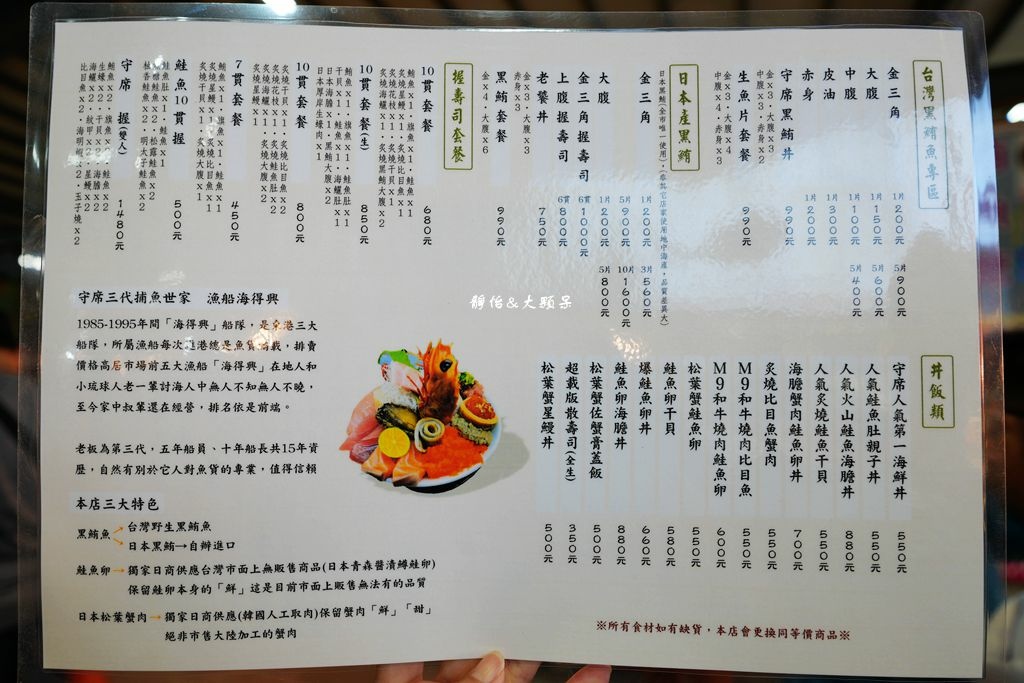 台灣黑鮪魚專區
金三角 1片200元 5片900元
大腹 1片150元 5片600元
中腹 1片100元 5片400元
皮油 1片300元
赤身 1片200元
守席黑鮪丼 990元
金x3・大腹x3
中腹x3・赤身x2
生魚片套餐 990元
金x3・大腹x3
中腹x4・赤身x3
日本產黑鮪
日本黑鮪(全市唯一使用),(泰其它店家使用地中海產,品質差異大)
金三角 1片200元 3片560元
5片900元 10片1600元
大腹 1片200元 5片800元
金三角握壽司 6貫1000元
上腹握壽司 6貫800元
老饕丼 750元
金x3・大腹x3
赤身x3
黑鮪套餐 990元
金x4・大腹x6
握壽司套餐
10貫套餐 680元
鮪魚x1・旗魚x1・鮭魚x1
炙燒星鰻x1・炙燒比目魚x1
炙燒花枝x1・炙燒干貝x1
炙燒海鱺x1・炙燒黑鮪大腹x2
10貫套餐(生) 850元
鮪魚x1・旗魚x1・鮭魚肚x1
干貝x1・鮭魚x1・海鱺肚x1
日本海膽x1・黑鮪大腹x2
日本厚岸生蠔肉x1
10貫套餐 800元
炙燒干貝x1・炙燒比目魚x2
炙燒花枝x1・炙燒鮭魚肚x2
炙燒海鱺x1・炙燒大腹x2
炙燒星鰻x1
7貫套餐 450元
鮪魚x1・旗魚x1・鮭魚x1
炙燒星鰻x1・炙燒大腹x1
炙燒干貝x1
鮭魚10貫握 500元
守席 握(雙人) 1480元
比目魚x2・海明蝦x2・玉子燒x2
守席三代捕魚世家 漁船海得興
1985-1995年間「海得興」船隊,是東港三大
船隊,所屬漁船每次進港總是魚貨滿載,拼賣
價格高居市場前五大漁船「海得興」在地人和
小琉球人老一輩討海人中無人不知無人不曉,
至今家中叔輩還在經營,排名依是前端。
老板為第三代,五年船員、十年船長共15年資
歷,自然有別於它人對魚貨的專業,值得信賴
本店三大特色
黑鮪魚→台灣野生黑鮪魚
日本黑鮪→自辦進口
鮭魚卵→獨家日商供應台灣市面上無販售商品(日本青森醬漬鱒鮭卵)
保留鮭卵本身的「鮮」這是目前市面上販售無法有的品質
日本松葉蟹肉→獨家日商供應(韓國人工取肉)保留蟹肉「鮮」「甜」
絕非市售大陸加工的蟹肉
靜怡&大顆呆
丼飯類
守席人氣第一海鮮丼 550元
人氣鮭魚肚親子丼 550元
人氣火山鮭魚海膽丼 880元
人氣炙燒鮭魚干貝 550元
海膽蟹肉鮭魚卵丼 700元
炙燒比目魚蟹肉 550元
M9和牛燒肉比目魚 550元
M9和牛燒肉鮭魚卵 600元
松葉蟹鮭魚卵 550元
鮭魚卵干貝 580元
爆鮭魚卵丼 660元
鮭魚卵海膽丼 880元
松葉蟹佐蟹膏蓋飯 500元
超載版散壽司(全生) 350元
松葉蟹星鰻丼 500元
※所有食材如有缺貨,本店會更換同等價商品※